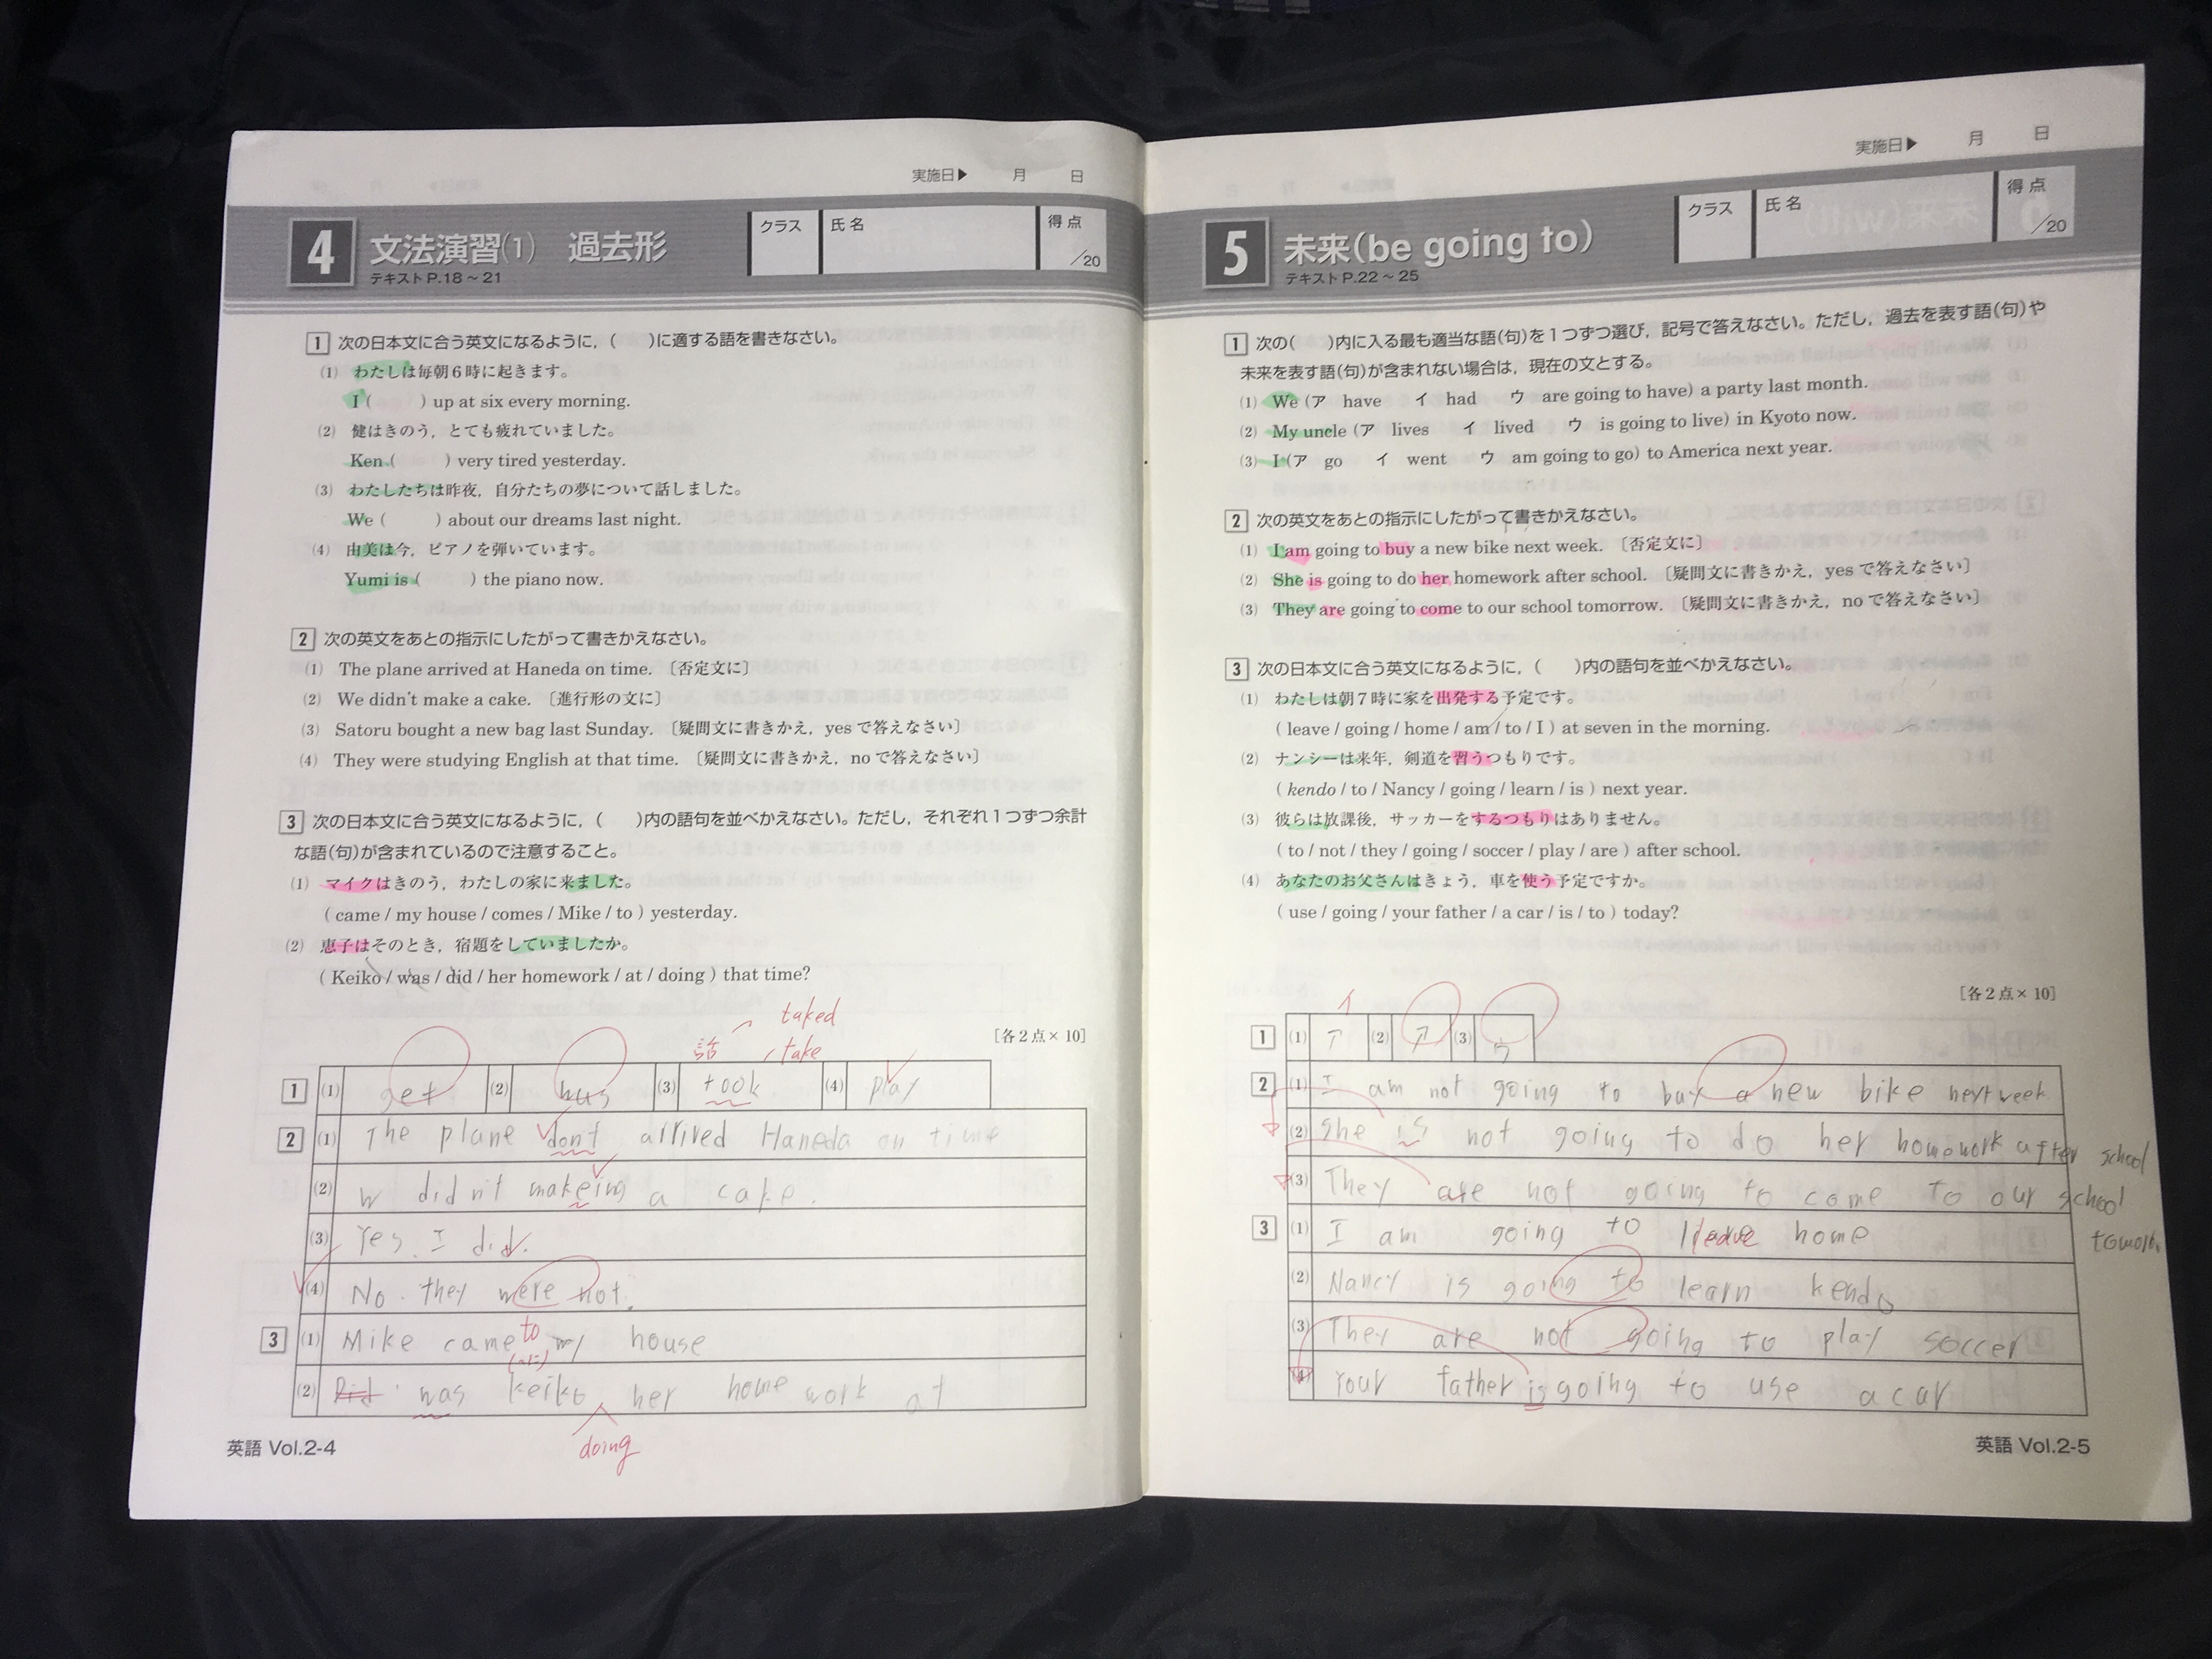 実施日▶ 月 日
4 文法演習(1) 過去形
テキストP.18～21
クラス 氏名 得点 /20
1 次の日本文に合う英文になるように，( )に適する語を書きなさい。
(1) わたしは毎朝6時に起きます。
I ( ) up at six every morning.
(2) 健はきのう，とても疲れていました。
Ken ( ) very tired yesterday.
(3) わたしたちは昨夜，自分たちの夢について話しました。
We ( ) about our dreams last night.
(4) 由美は今，ピアノを弾いています。
Yumi is ( ) the piano now.
2 次の英文をあとの指示にしたがって書きかえなさい。
(1) The plane arrived at Haneda on time. 〔否定文に〕
(2) We didn't make a cake. 〔進行形の文に〕
(3) Satoru bought a new bag last Sunday. 〔疑問文に書きかえ，yesで答えなさい〕
(4) They were studying English at that time. 〔疑問文に書きかえ，noで答えなさい〕
3 次の日本文に合う英文になるように，( )内の語句を並べかえなさい。ただし，それぞれ1つずつ余計
な語(句)が含まれているので注意すること。
(1) マイクはきのう，わたしの家に来ました。
( came / my house / comes / Mike / to ) yesterday.
(2) 恵子はそのとき，宿題をしていましたか。
( Keiko / was / did / her homework / at / doing ) that time?
taked
話 take
[各2点×10]
1 (1) get (2) (3) took (4) play
2 (1) The plane don't arrived Haneda on time
(2) w didn't makeing a cake.
(3) Yes. I did.
(4) No. they were not.
3 (1) Mike came to my house
(2) Did was keiko her home work at
doing
英語 Vol.2-4
実施日▶ 月 日
5 未来(be going to)
テキストP.22～25
クラス 氏名 得点 /20
1 次の( )内に入る最も適当な語(句)を1つずつ選び，記号で答えなさい。ただし，過去を表す語(句)や
未来を表す語(句)が含まれない場合は，現在の文とする。
(1) We (ア have イ had ウ are going to have) a party last month.
(2) My uncle (ア lives イ lived ウ is going to live) in Kyoto now.
(3) I (ア go イ went ウ am going to go) to America next year.
2 次の英文をあとの指示にしたがって書きかえなさい。
(1) I am going to buy a new bike next week. 〔否定文に〕
(2) She is going to do her homework after school. 〔疑問文に書きかえ，yesで答えなさい〕
(3) They are going to come to our school tomorrow. 〔疑問文に書きかえ，noで答えなさい〕
3 次の日本文に合う英文になるように，( )内の語句を並べかえなさい。
(1) わたしは朝7時に家を出発する予定です。
( leave / going / home / am / to / I ) at seven in the morning.
(2) ナンシーは来年，剣道を習うつもりです。
( kendo / to / Nancy / going / learn / is ) next year.
(3) 彼らは放課後，サッカーをするつもりはありません。
( to / not / they / going / soccer / play / are ) after school.
(4) あなたのお父さんはきょう，車を使う予定ですか。
( use / going / your father / a car / is / to ) today?
[各2点×10]
イ
1 (1) ア (2) ア (3) ウ
2 (1) I am not going to buy a new bike next week
(2) She is not going to do her homework after school
(3) They are not going to come to our school
3 (1) I am going to leave home
(2) Nancy is going to learn kendo
(3) They are not going to play soccer
(4) Your father is going to use a car
英語 Vol.2-5